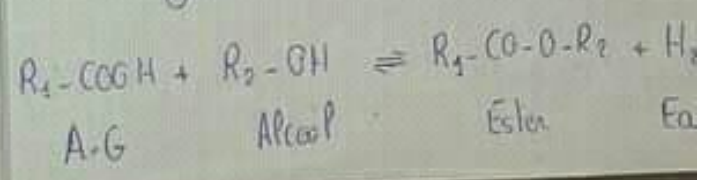 R₁-COOH + R₂-OH ⇌ R₁-CO-O-R₂ + H₂
A.G Alcool Ester Ea